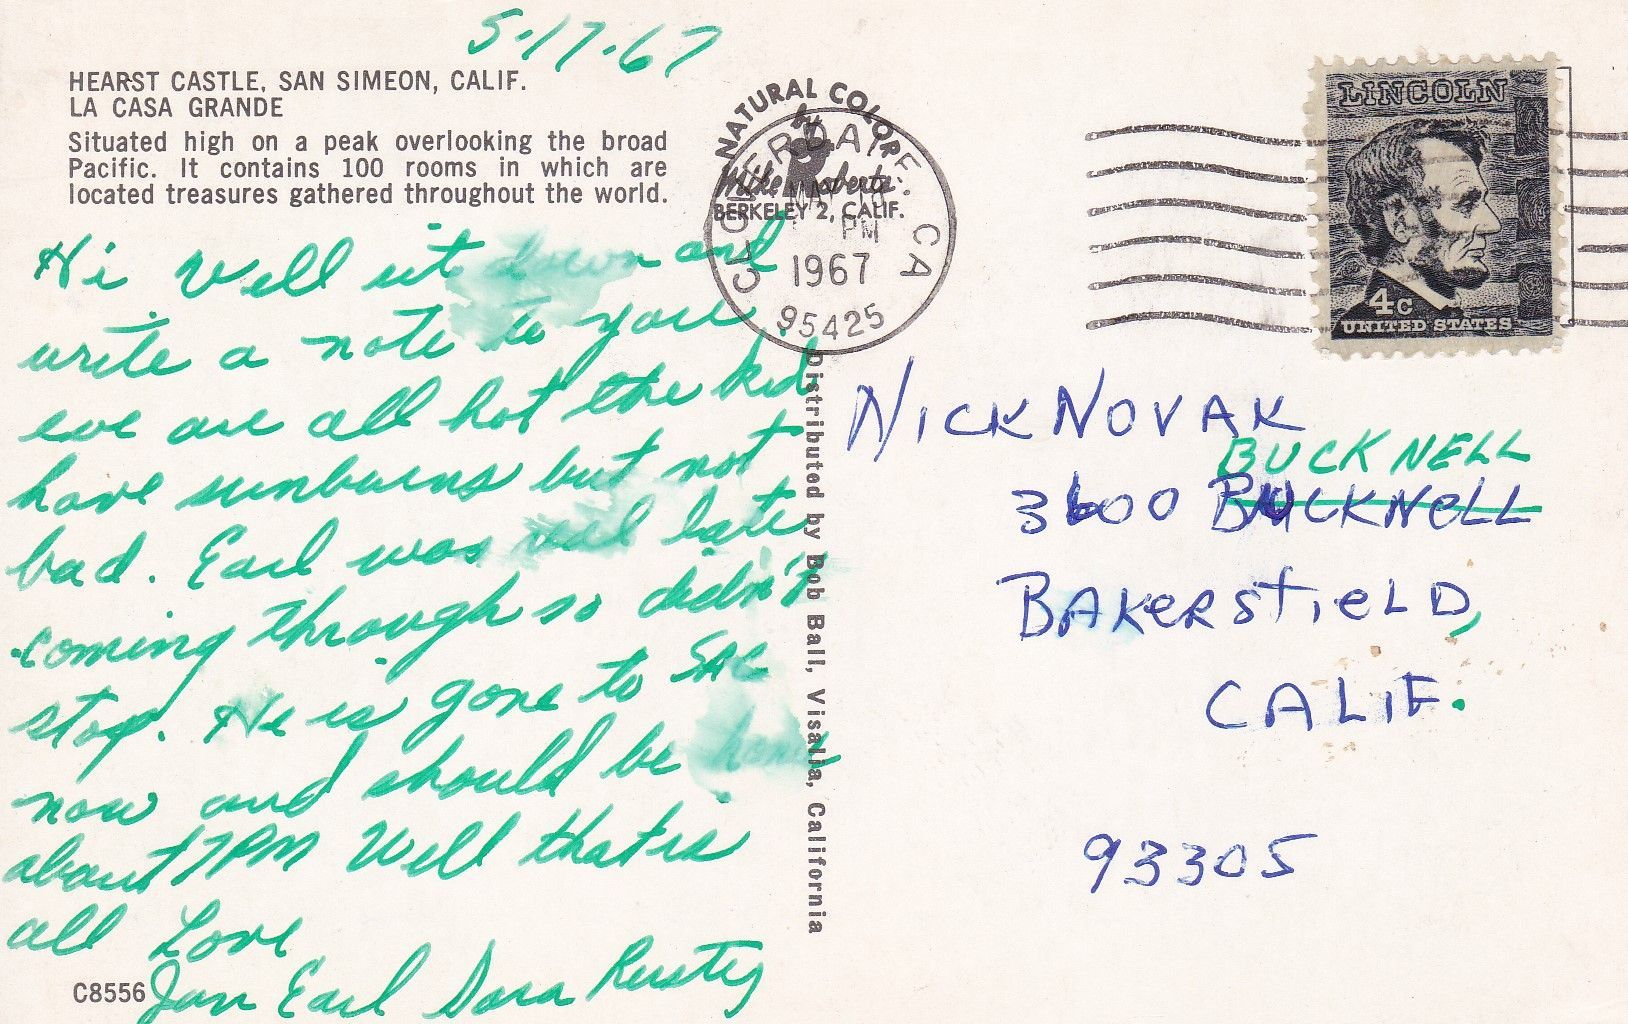 5-17-67
HEARST CASTLE, SAN SIMEON, CALIF.
LA CASA GRANDE
Situated high on a peak overlooking the broad
Pacific. It contains 100 rooms in which are
located treasures gathered throughout the world.
Hi Well sit down and
write a note to you.
we are all hot the kids
have sunburns but not
bad. Earl was real late
coming through so didn't
stop. He is gone to SAC
now and should be home
about 7PM Well that is
all Love
Jan Earl Dora Rusty
C8556
NATURAL COLOR
by
Mike Roberts
BERKELEY 2, CALIF.
CLOVERDALE, CA
MAY 18
PM
1967
95425
Distributed by Bob Ball, Visalia, California
LINCOLN
4c
UNITED STATES
NICK NOVAK
BUCKNELL
3600 BUCKNELL
BAKERSFIELD,
CALIF.
93305